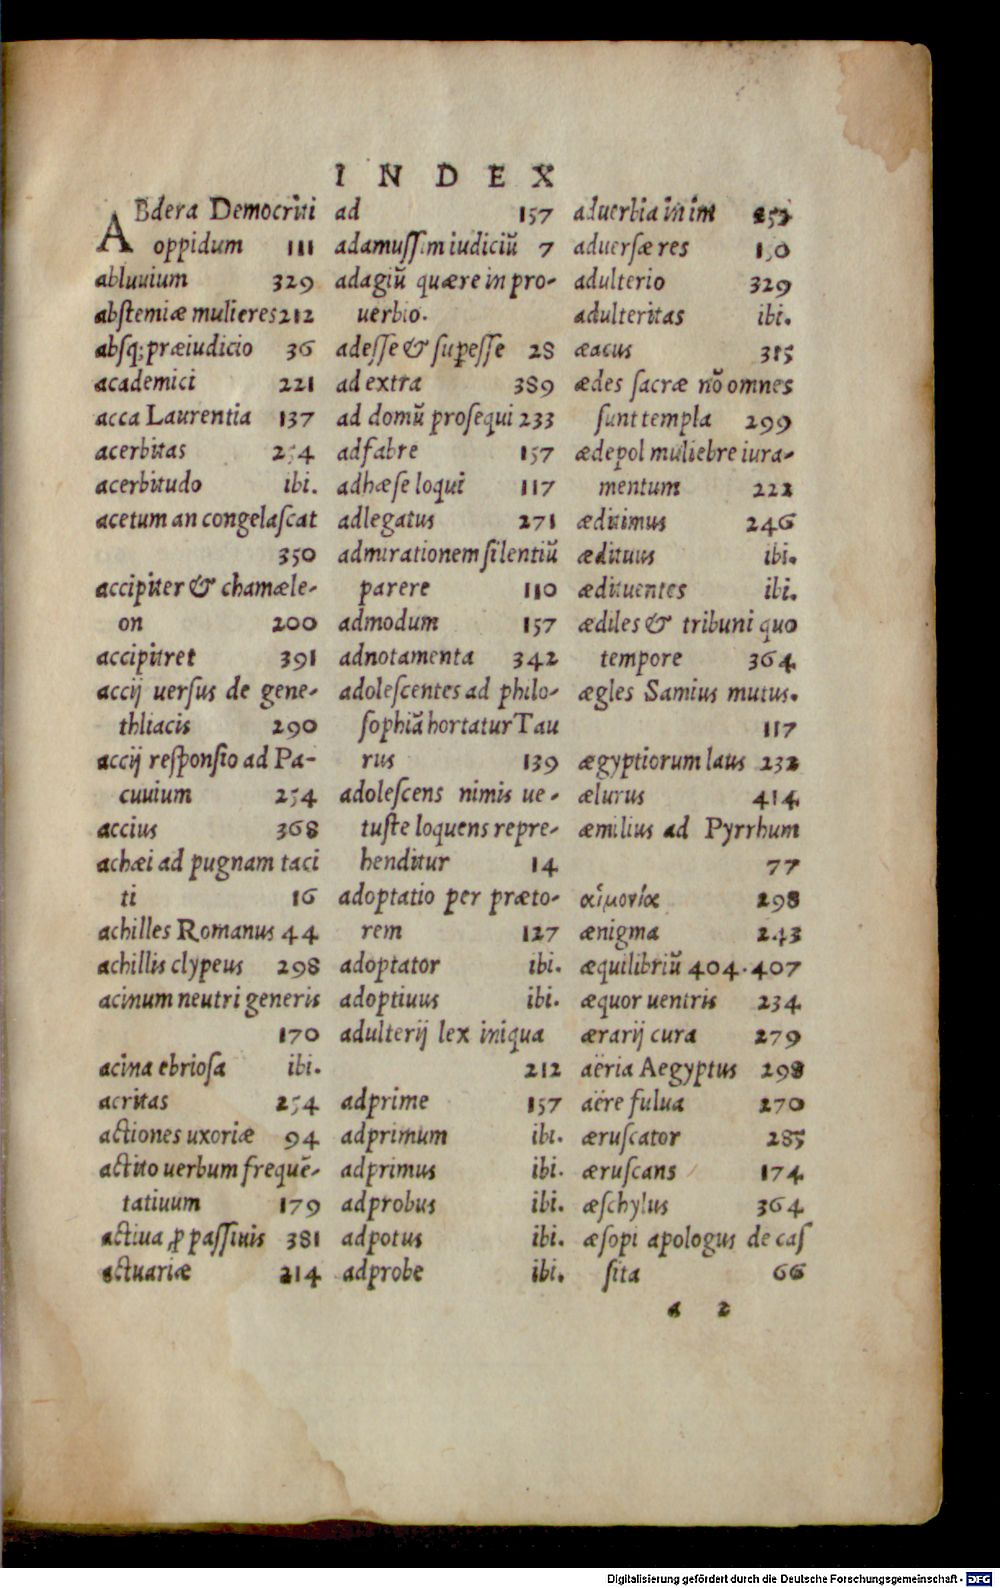 INDEX
ABdera Democriti
oppidum 111
abluuium 329
abstemiæ mulieres 212
absq; præiudicio 36
academici 221
acca Laurentia 137
acerbitas 254
acerbitudo ibi.
acetum an congelascat
350
accipiter & chamæle-
on 200
accipitret 391
accij uersus de gene-
thliacis 290
accij responsio ad Pa-
cuuium 254
accius 368
achæi ad pugnam taci
ti 16
achilles Romanus 44
achillis clypeus 298
acinum neutri generis
170
acina ebriosa ibi.
acritas 254
actiones uxoriæ 94
actito uerbum frequē-
tatiuum 179
actiua ꝓ passiuis 381
actuariæ 214
ad 157
adamussim iudiciū 7
adagiū quære in pro-
uerbio.
adesse & superesse 28
ad extra 389
ad domū prosequi 233
adfabre 157
adhæse loqui 117
adlegatus 271
admirationem silentiū
parere 110
admodum 157
adnotamenta 342
adolescentes ad philo-
sophiā hortatur Tau
rus 139
adolescens nimis ue-
tuste loquens repre-
henditur 14
adoptatio per præto-
rem 127
adoptator ibi.
adoptiuus ibi.
adulterij lex iniqua
212
adprime 157
adprimum ibi.
adprimus ibi.
adprobus ibi.
adpotus ibi.
adprobe ibi.
aduerbia in im
aduersæ res 150
adulterio 329
adulteritas ibi.
æacus 315
ædes sacræ nō omnes
sunt templa 299
ædepol muliebre iura-
mentum 222
æditimus 246
ædituus ibi.
ædituentes ibi.
ædiles & tribuni quo
tempore 364
ægles Samius mutus.
117
ægyptiorum laus 232
ælurus 414
æmilius ad Pyrrhum
77
αἱμονία 298
ænigma 243
æquilibriū 404.407
æquor uentris 234
ærarij cura 279
aëria Aegyptus 298
aëre fulua 270
æruscator 285
æruscans 174
æschylus 364
æsopi apologus de cas
sita 66
a 2
Digitalisierung gefördert durch die Deutsche Forschungsgemeinschaft - DFG